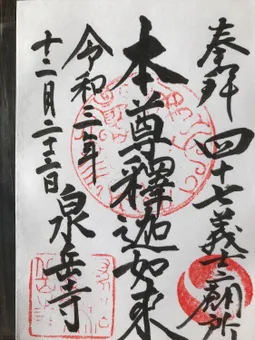 奉拝 四十七義士廟所
本尊釋迦如来
令和二年
十二月二十三日
泉岳寺